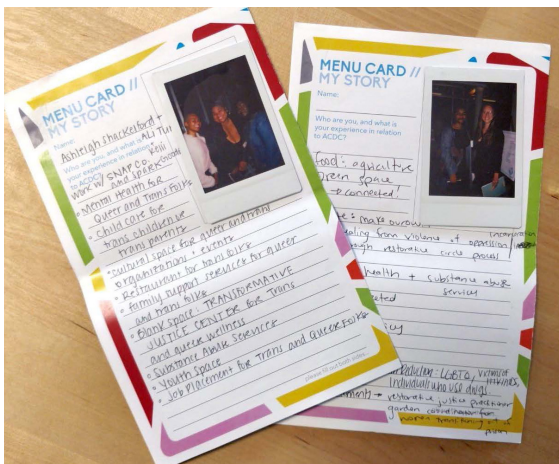 MENU CARD //
MY STORY
Name:
Ashleigh Shackelford +
Who are you, and what is
your experience in relation
to ACDC?
work w/ SNAPCo.
and Spark
• Mental Health for
Queer and Trans Folks
• Child care for
trans children or
trans parents
• cultural space for queer and trans
organizations + events
• Restaurant for trans folks
• family support services for queer
and trans folks
• Blank space: TRANSFORMATIVE
JUSTICE CENTER for Trans
and queer wellness
• Substance Abuse Services
• Youth Space
• Job Placement for Trans and Queer Folks
please fill out both sides...
MENU CARD //
MY STORY
Name:
Who are you, and what is
your experience in relation
to ACDC?
food: agriculture
green space
→ connected!
: make our own
healing from violence of oppression
through restorative circle process
health + substance abuse
services
: LGBTQ, victims of
individuals who use drugs
→ restorative justice practitioner
garden coordinator for